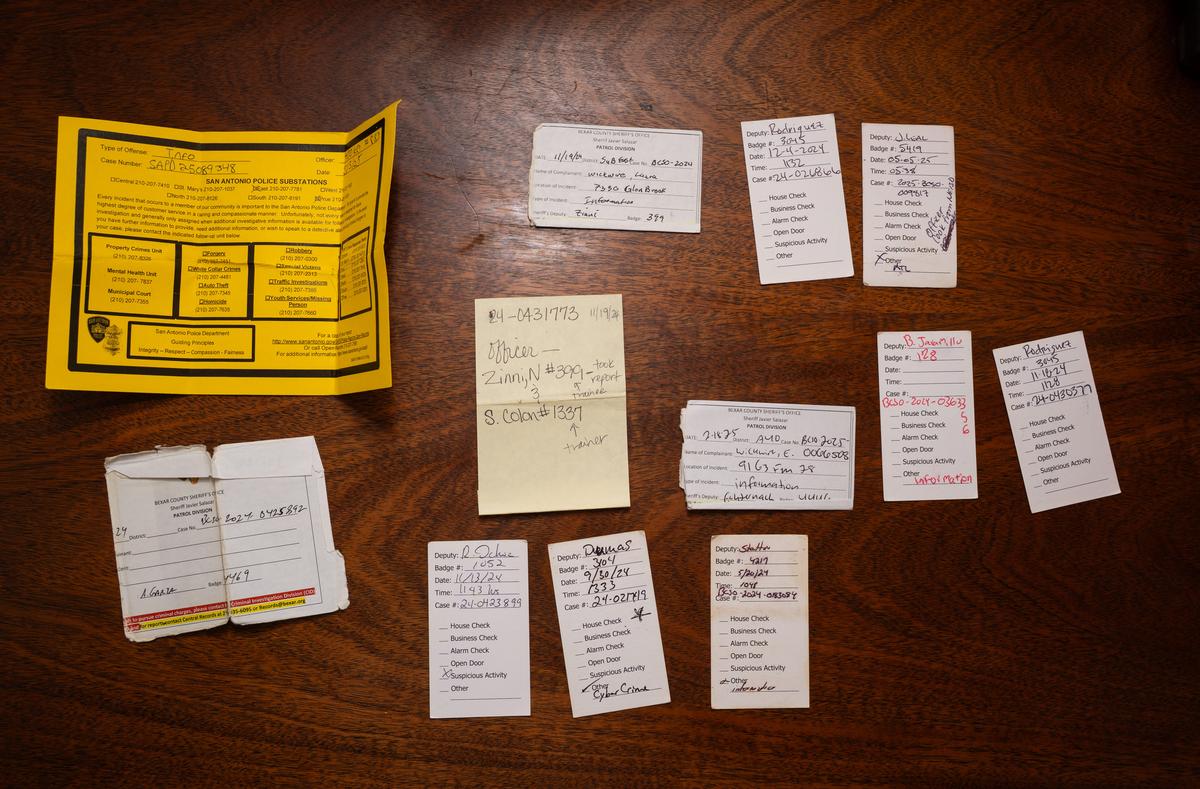 Type of Offense: Info
Officer:
Case Number: SAPD 25089348
Date:
SAN ANTONIO POLICE SUBSTATIONS
Central 210-207-7410
St. Mary's 210-207-1037
East 210-207-7781
North 210-207-8126
South 210-207-8191
Every incident that occurs to a member of our community is important to the San Antonio Police
highest degree of customer service in a caring and compassionate manner. Unfortunately, not every
investigation and generally only assigned when additional investigative information is available for
you have further information to provide, need additional information, or wish to speak to a detective
your case, please contact the indicated follow-up unit below:
Property Crimes Unit
(210) 207-8326
Mental Health Unit
(210) 207-7837
Municipal Court
(210) 207-7355
Forgery
White Collar Crimes
(210) 207-4481
Auto Theft
(210) 207-7345
Homicide
(210) 207-7635
Robbery
(210) 207-0300
Special Victims
(210) 207-2313
Traffic Investigations
(210) 207-7385
Youth Services/Missing
Person
(210) 207-7660
San Antonio Police Department
Guiding Principles
Integrity – Respect – Compassion - Fairness
For a
http://www.sanantonio.gov
Or call Open
For additional information
BEXAR COUNTY SHERIFF'S OFFICE
Sheriff Javier Salazar
PATROL DIVISION
DATE: 11/19/24 District: Case No. BCSO-2024
Name of Complainant: Wickwire, Laura
Location of Incident: 7350 Glen Brook
Type of Incident: Information
Sheriff's Deputy: Zinni Badge: 399
Deputy: Rodriguez
Badge #: 3045
Date: 12-4-2024
Time: 1132
Case #: 24-0268666
House Check
Business Check
Alarm Check
Open Door
Suspicious Activity
Other
Deputy: J. LEAL
Badge #: 5419
Date: 05-05-25
Time: 05:38
Case #: 2025-BCSO-
009817
House Check
Business Check
Alarm Check
Open Door
Suspicious Activity
X Other
Officer
took
24-0431773 11/19/24
Officer —
Zinni, N #399 – took
report
3
trainee
S. Colon #1337
↑
trainer
BEXAR COUNTY SHERIFF'S OFFICE
Sheriff Javier Salazar
PATROL DIVISION
DATE: 2-18-25 District: Case No. BCSO 2025-
Name of Complainant: Wickwire, E. 0066508
Location of Incident: 9163 FM 78
Type of Incident: information
Sheriff's Deputy:
Deputy: B. Jaramillo
Badge #: 128
Date:
Time:
Case #:
BCSO-2024-03633
5
6
House Check
Business Check
Alarm Check
Open Door
Suspicious Activity
Other
Information
Deputy: Rodriguez
Badge #: 3045
Date: 11-18-24
Time: 1128
Case #: 24-0430377
House Check
Business Check
Alarm Check
Open Door
Suspicious Activity
Other
BEXAR COUNTY SHERIFF'S OFFICE
Sheriff Javier Salazar
PATROL DIVISION
24 District: Case No. BCSO-2024-0425892
A. GARZA Badge: 1469
to pursue criminal charges, please contact Criminal Investigation Division (CID)
for report contact Central Records at 335-6095 or Records@bexar.org
Deputy: R. Ochoa
Badge #: 1052
Date: 11/13/24
Time: 1143 hrs
Case #: 24-0423899
House Check
Business Check
Alarm Check
Open Door
X Suspicious Activity
Other
Deputy: Dumas
Badge #: 304
Date: 9/30/24
Time: 1333
Case #: 24-021719
House Check
Business Check
Alarm Check
Open Door
Suspicious Activity
✓ Other
Cyber Crime
Deputy:
Badge #: 4217
Date: 5/20/24
Time: 1048
BCSO-2024-0183084
Case #:
House Check
Business Check
Alarm Check
Open Door
Suspicious Activity
Other
information